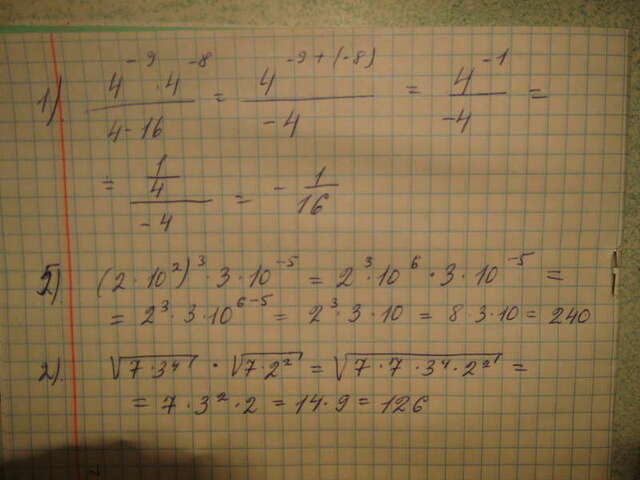 1). \frac{4^{-9} \cdot 4^{-8}}{4-16} = \frac{4^{-9+(-8)}}{-4} = \frac{4^{-1}}{-4} =
= \frac{\frac{1}{4}}{-4} = -\frac{1}{16}
5). (2 \cdot 10^2)^3 \cdot 3 \cdot 10^{-5} = 2^3 \cdot 10^6 \cdot 3 \cdot 10^{-5} =
= 2^3 \cdot 3 \cdot 10^{6-5} = 2^3 \cdot 3 \cdot 10 = 8 \cdot 3 \cdot 10 = 240
2). \sqrt{7 \cdot 3^4} \cdot \sqrt{7 \cdot 2^2} = \sqrt{7 \cdot 7 \cdot 3^4 \cdot 2^2} =
= 7 \cdot 3^2 \cdot 2 = 14 \cdot 9 = 126